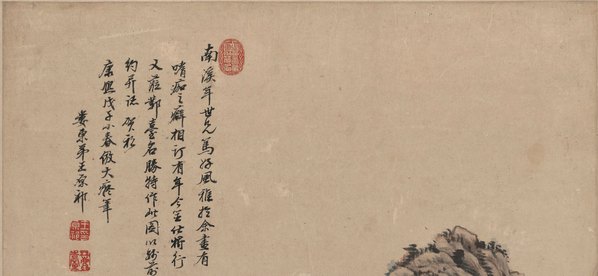 南溪年世兄篤好風雅於余畫有
嗜痂之癖相訂有年今筮仕將行
又蒞鄴臺名勝特作此圖以踐前
約并誌賀私
康熙戊子小春倣大癡筆
婁東弟王原祁